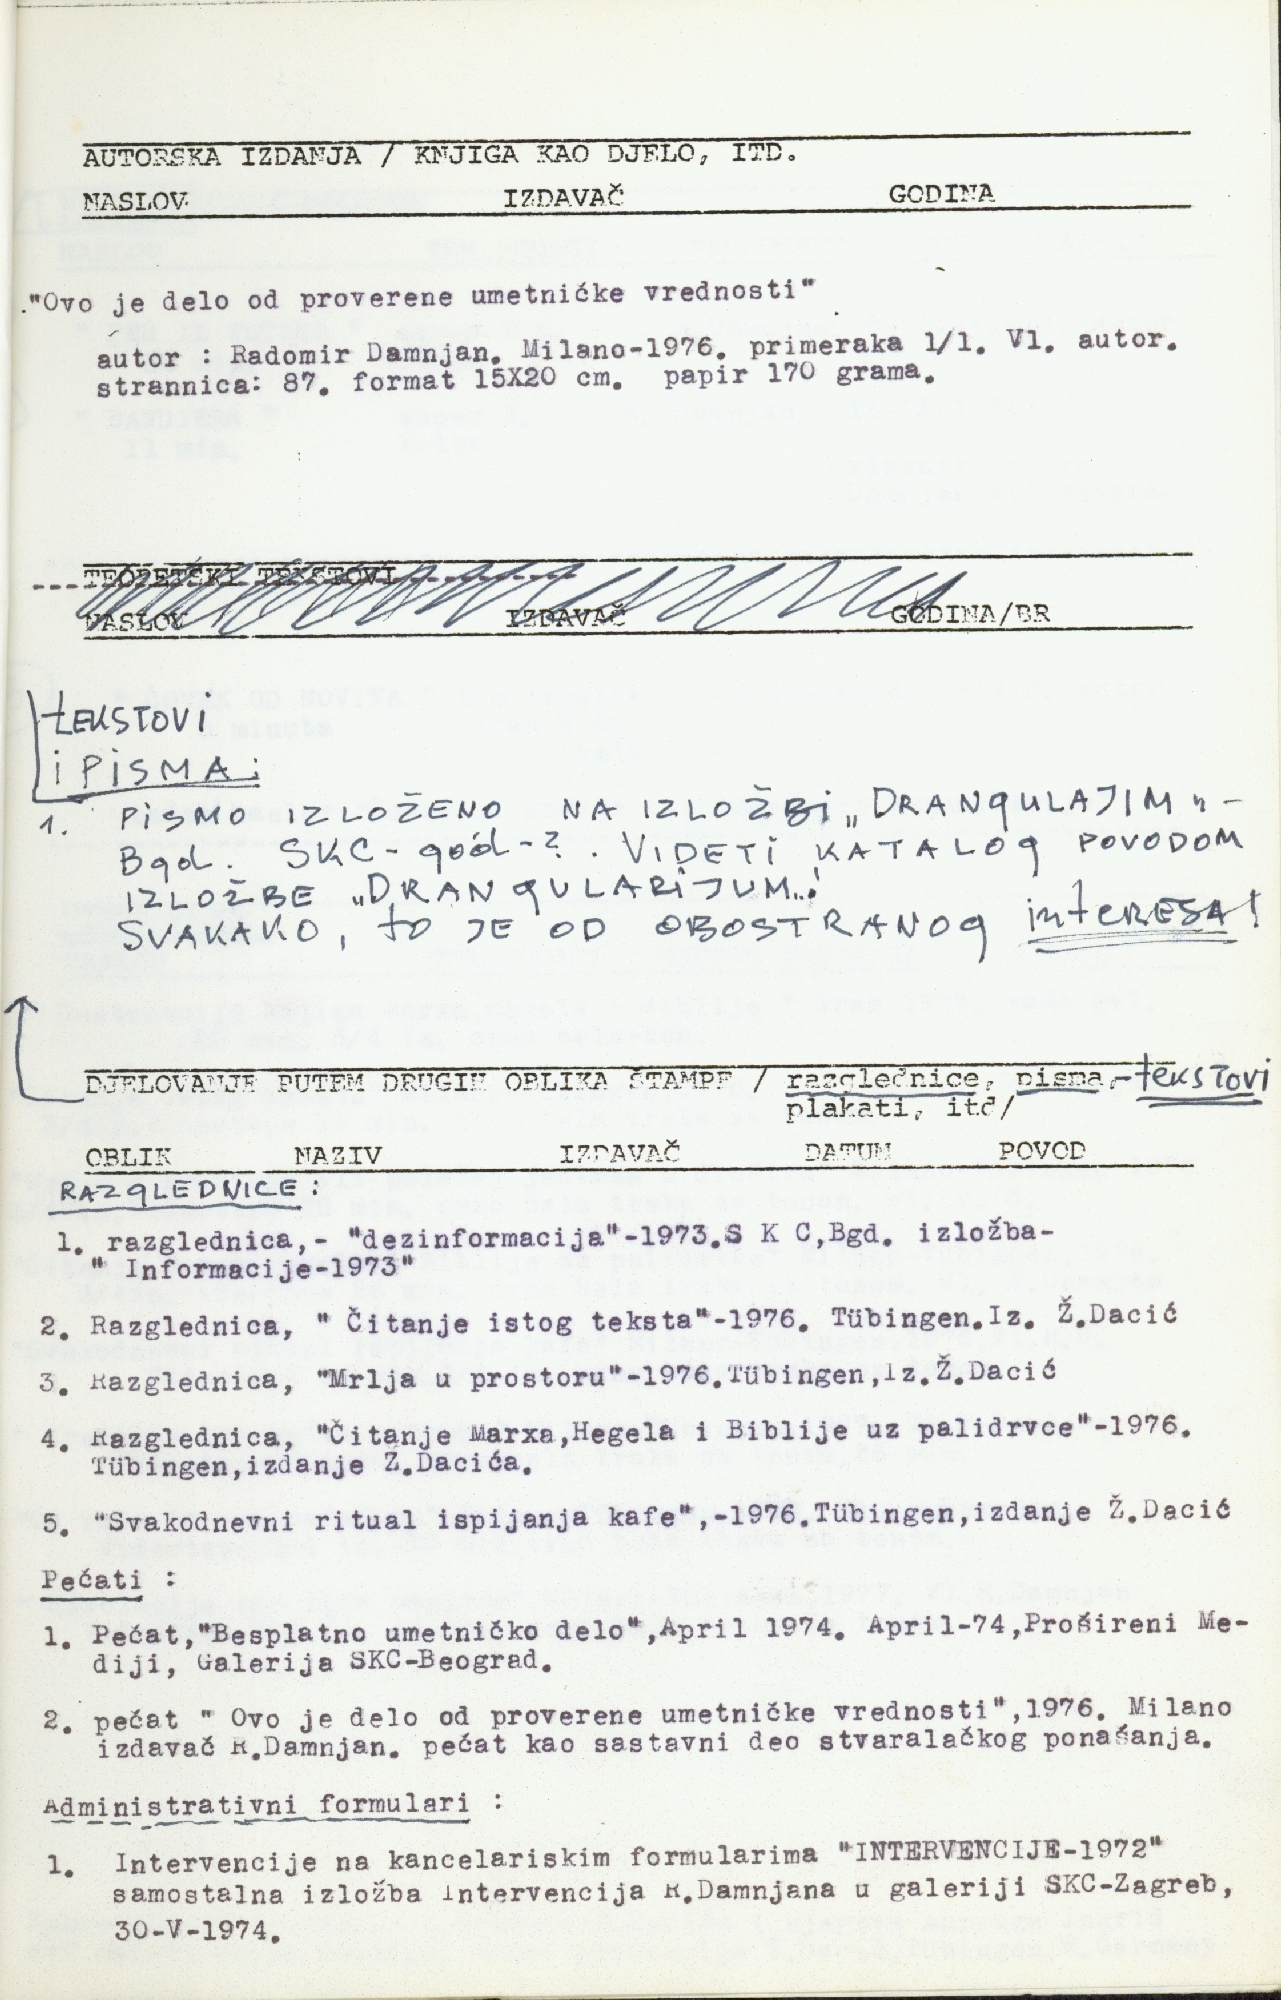 AUTORSKA IZDANJA / KNJIGA KAO DJELO, ITD.
NASLOV IZDAVAČ GODINA
."Ovo je delo od proverene umetničke vrednosti"
autor : Radomir Damnjan. Milano-1976. primeraka 1/1. Vl. autor.
strannica: 87. format 15X20 cm. papir 170 grama.
TEORETSKI TEKSTOVI
NASLOV IZDAVAČ GODINA/BR
tEKSTOVI
i PiSMA:
1. PiSMO IZLOŽENO NA IZLOŽBi „DRANGULAJIM" -
Bgd. SKC - god - ? . VIDETI KATALOG POVODOM
IZLOŽBE „DRANGULARIJUM"!
SVAKAKO, tO JE OD OBOSTRANOG intERESA!
DJELOVANJE PUTEM DRUGIH OBLIKA ŠTAMPE / razglednice, pisma,-tEKSTOVi
plakati, itd/
OBLIK NAZIV IZDAVAČ DATUM POVOD
RAZGLEDNICE :
1. razglednica,- "dezinformacija"-1973.S K C,Bgd. izložba-
" Informacije-1973"
2. Razglednica, " Čitanje istog teksta"-1976. Tübingen.Iz. Ž.Dacić
3. Razglednica, "Mrlja u prostoru"-1976.Tübingen,Iz.Ž.Dacić
4. Razglednica, "Čitanje Marxa,Hegela i Biblije uz palidrvce"-1976.
Tübingen,izdanje Ž.Dacića.
5. "Svakodnevni ritual ispijanja kafe",-1976.Tübingen,izdanje Ž.Dacić
Pečati :
1. Pečat,"Besplatno umetničko delo",April 1974. April-74,Prošireni Me-
diji, Galerija SKC-Beograd.
2. pečat " Ovo je delo od proverene umetničke vrednosti",1976. Milano
izdavač R.Damnjan. pečat kao sastavni deo stvaralačkog ponašanja.
Administrativni formulari :
1. Intervencije na kancelariskim formularima "INTERVENCIJE-1972"
samostalna izložba Intervencija R.Damnjana u galeriji SKC-Zagreb,
30-V-1974.